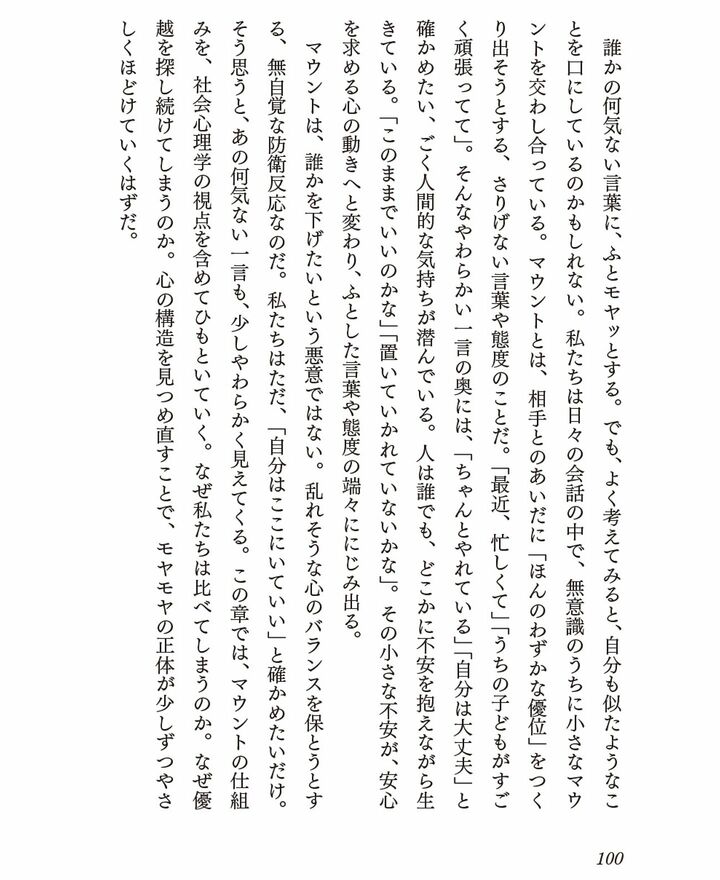 誰かの何気ない言葉に、ふとモヤッとする。でも、よく考えてみると、自分も似たようなこ
とを口にしているのかもしれない。私たちは日々の会話の中で、無意識のうちに小さなマウ
ントを交わし合っている。マウントとは、相手とのあいだに「ほんのわずかな優位」をつく
り出そうとする、さりげない言葉や態度のことだ。「最近、忙しくて」「うちの子どもがすご
く頑張ってて」。そんなやわらかい一言の奥には、「ちゃんとやれている」「自分は大丈夫」と
確かめたい、ごく人間的な気持ちが潜んでいる。人は誰でも、どこかに不安を抱えながら生
きている。「このままでいいのかな」「置いていかれていないかな」。その小さな不安が、安心
を求める心の動きへと変わり、ふとした言葉や態度の端々ににじみ出る。
マウントは、誰かを下げたいという悪意ではない。乱れそうな心のバランスを保とうとす
る、無自覚な防衛反応なのだ。私たちはただ、「自分はここにいていい」と確かめたいだけ。
そう思うと、あの何気ない一言も、少しやわらかく見えてくる。この章では、マウントの仕組
みを、社会心理学の視点を含めてひもといていく。なぜ私たちは比べてしまうのか。なぜ優
越を探し続けてしまうのか。心の構造を見つめ直すことで、モヤモヤの正体が少しずつやさ
しくほどけていくはずだ。
100